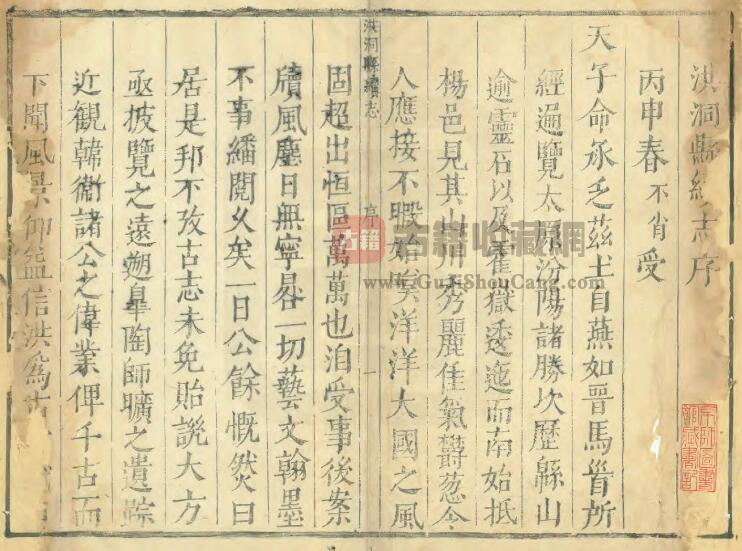 洪洞縣續志序
丙申春不肖受
天子命承乏茲土自燕如晉馬首所
經遍覽太原汾陽諸勝次歷綿山
逾靈石以及霍嶽逶迤而南始抵
楊邑見其山川秀麗佳氣欝葱令
人應接不暇始嘆洋洋大國之風
固超出恒區萬萬也洎受事後案
牘風塵日無寧晷一切藝文翰墨
不事繙閱久矣一日公餘慨然曰
居是邦不攷古志未免貽誚大方
亟披覽之遠遡臯陶師曠之遺踪
近観韓衛諸公之偉業俾千古而
下聞風景仰益信洪爲古
洪洞縣續志
序
一
古籍
古籍收藏網
www.GuJiShouCang.com